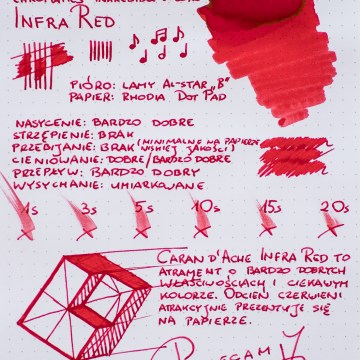 INFRA RED
PIÓRO: LAMY AL-STAR "B"
PAPIER: RHODIA DOT PAD
NASYCENIE: BARDZO DOBRE
STRZĘPIENIE: BRAK
PRZEBIJANIE: BRAK (MINIMALNE NA PAPIERZE NISKIEJ JAKOŚCI)
CIENIOWANIE: DOBRE/BARDZO DOBRE
PRZEPŁYW: BARDZO DOBRY
WYSYCHANIE: UMIARKOWANE
1s 3s 5s 10s 15s 20s
CARAN D'ACHE INFRA RED TO
ATRAMENT O BARDZO DOBRYCH
WŁAŚCIWOŚCIACH I CIEKAWYM
KOLORZE. ODCIEŃ CZERWIENI
ATRAKCYJNIE PREZENTUJE SIĘ
NA PAPIERZE.